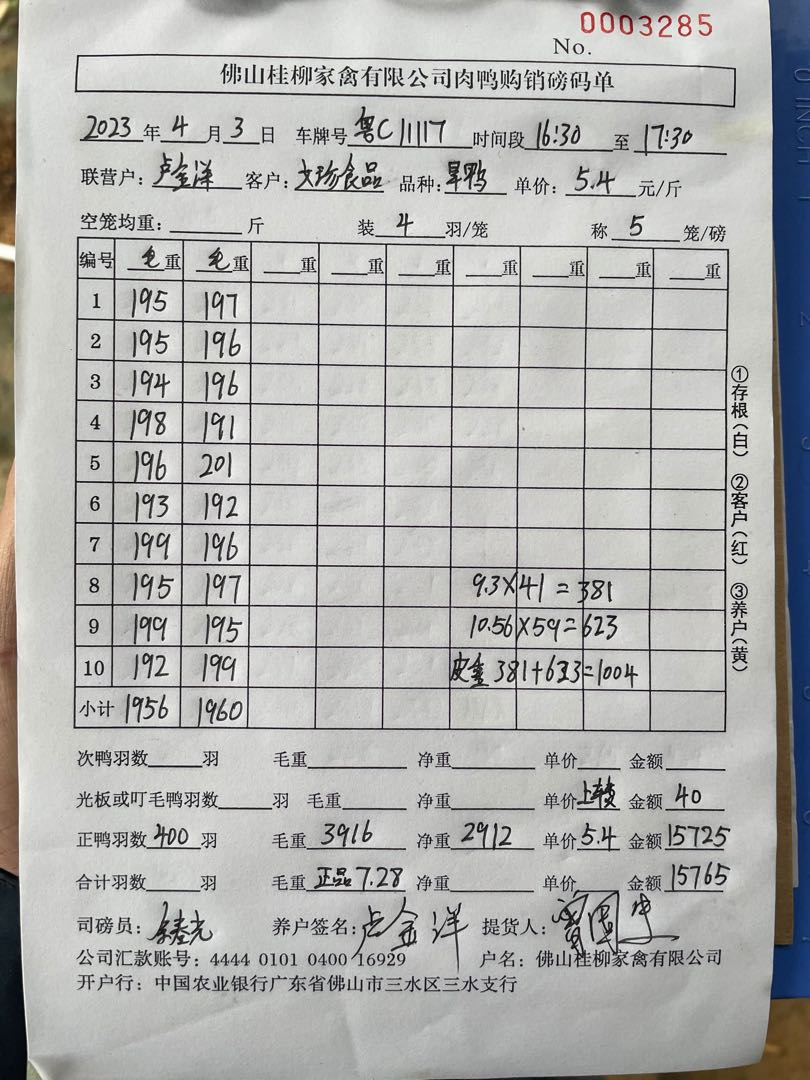 0003285
No.
佛山桂柳家禽有限公司肉鸭购销磅码单
2023年4月3日 车牌号粤C11117 时间段16:30至17:30
联营户：卢金洋 客户：文珍食品 品种：旱鸭 单价：5.4元/斤
空笼均重：______斤 装4羽/笼 称5笼/磅
编号 毛重 毛重 __重 __重 __重 __重 __重 __重 __重
1 195 197
2 195 196
3 194 196
4 198 191
5 196 201
6 193 192
7 199 196
8 195 197 9.3×41=381
9 199 195 10.56×59=623
10 192 199 皮重 381+623=1004
小计 1956 1960
①存根（白） ②客户（红） ③养户（黄）
次鸭羽数______羽 毛重______ 净重______ 单价____ 金额____
光板或叮毛鸭羽数______羽 毛重______ 净重______ 单价上车费 金额40
正鸭羽数400羽 毛重3916 净重2912 单价5.4 金额15725
合计羽数______羽 毛重正品7.28 净重______ 单价____ 金额15765
司磅员： 养户签名：卢金洋 提货人：
公司汇款账号：4444 0101 0400 16929 户名：佛山桂柳家禽有限公司
开户行：中国农业银行广东省佛山市三水区三水支行